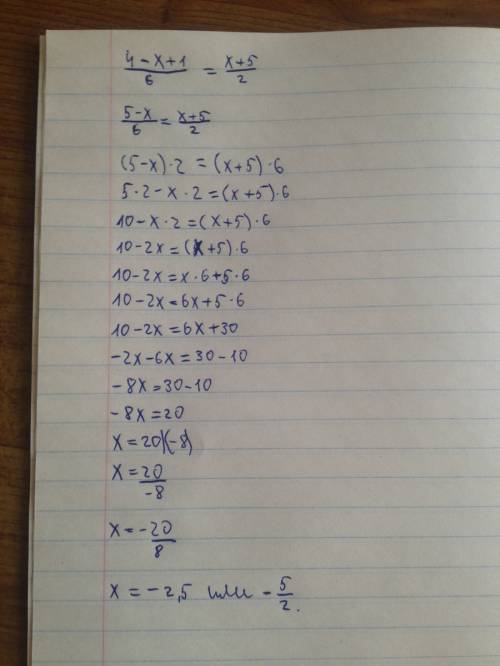 4-x+1/6 = x+5/2
5-x/6 = x+5/2
(5-x)·2 = (x+5)·6
5·2-x·2=(x+5)·6
10-x·2=(x+5)·6
10-2x=(x+5)·6
10-2x=x·6+5·6
10-2x=6x+5·6
10-2x=6x+30
-2x-6x=30-10
-8x=30-10
-8x=20
x=20/(-8)
x=20/-8
x=-20/8
x=-2,5 или -5/2.